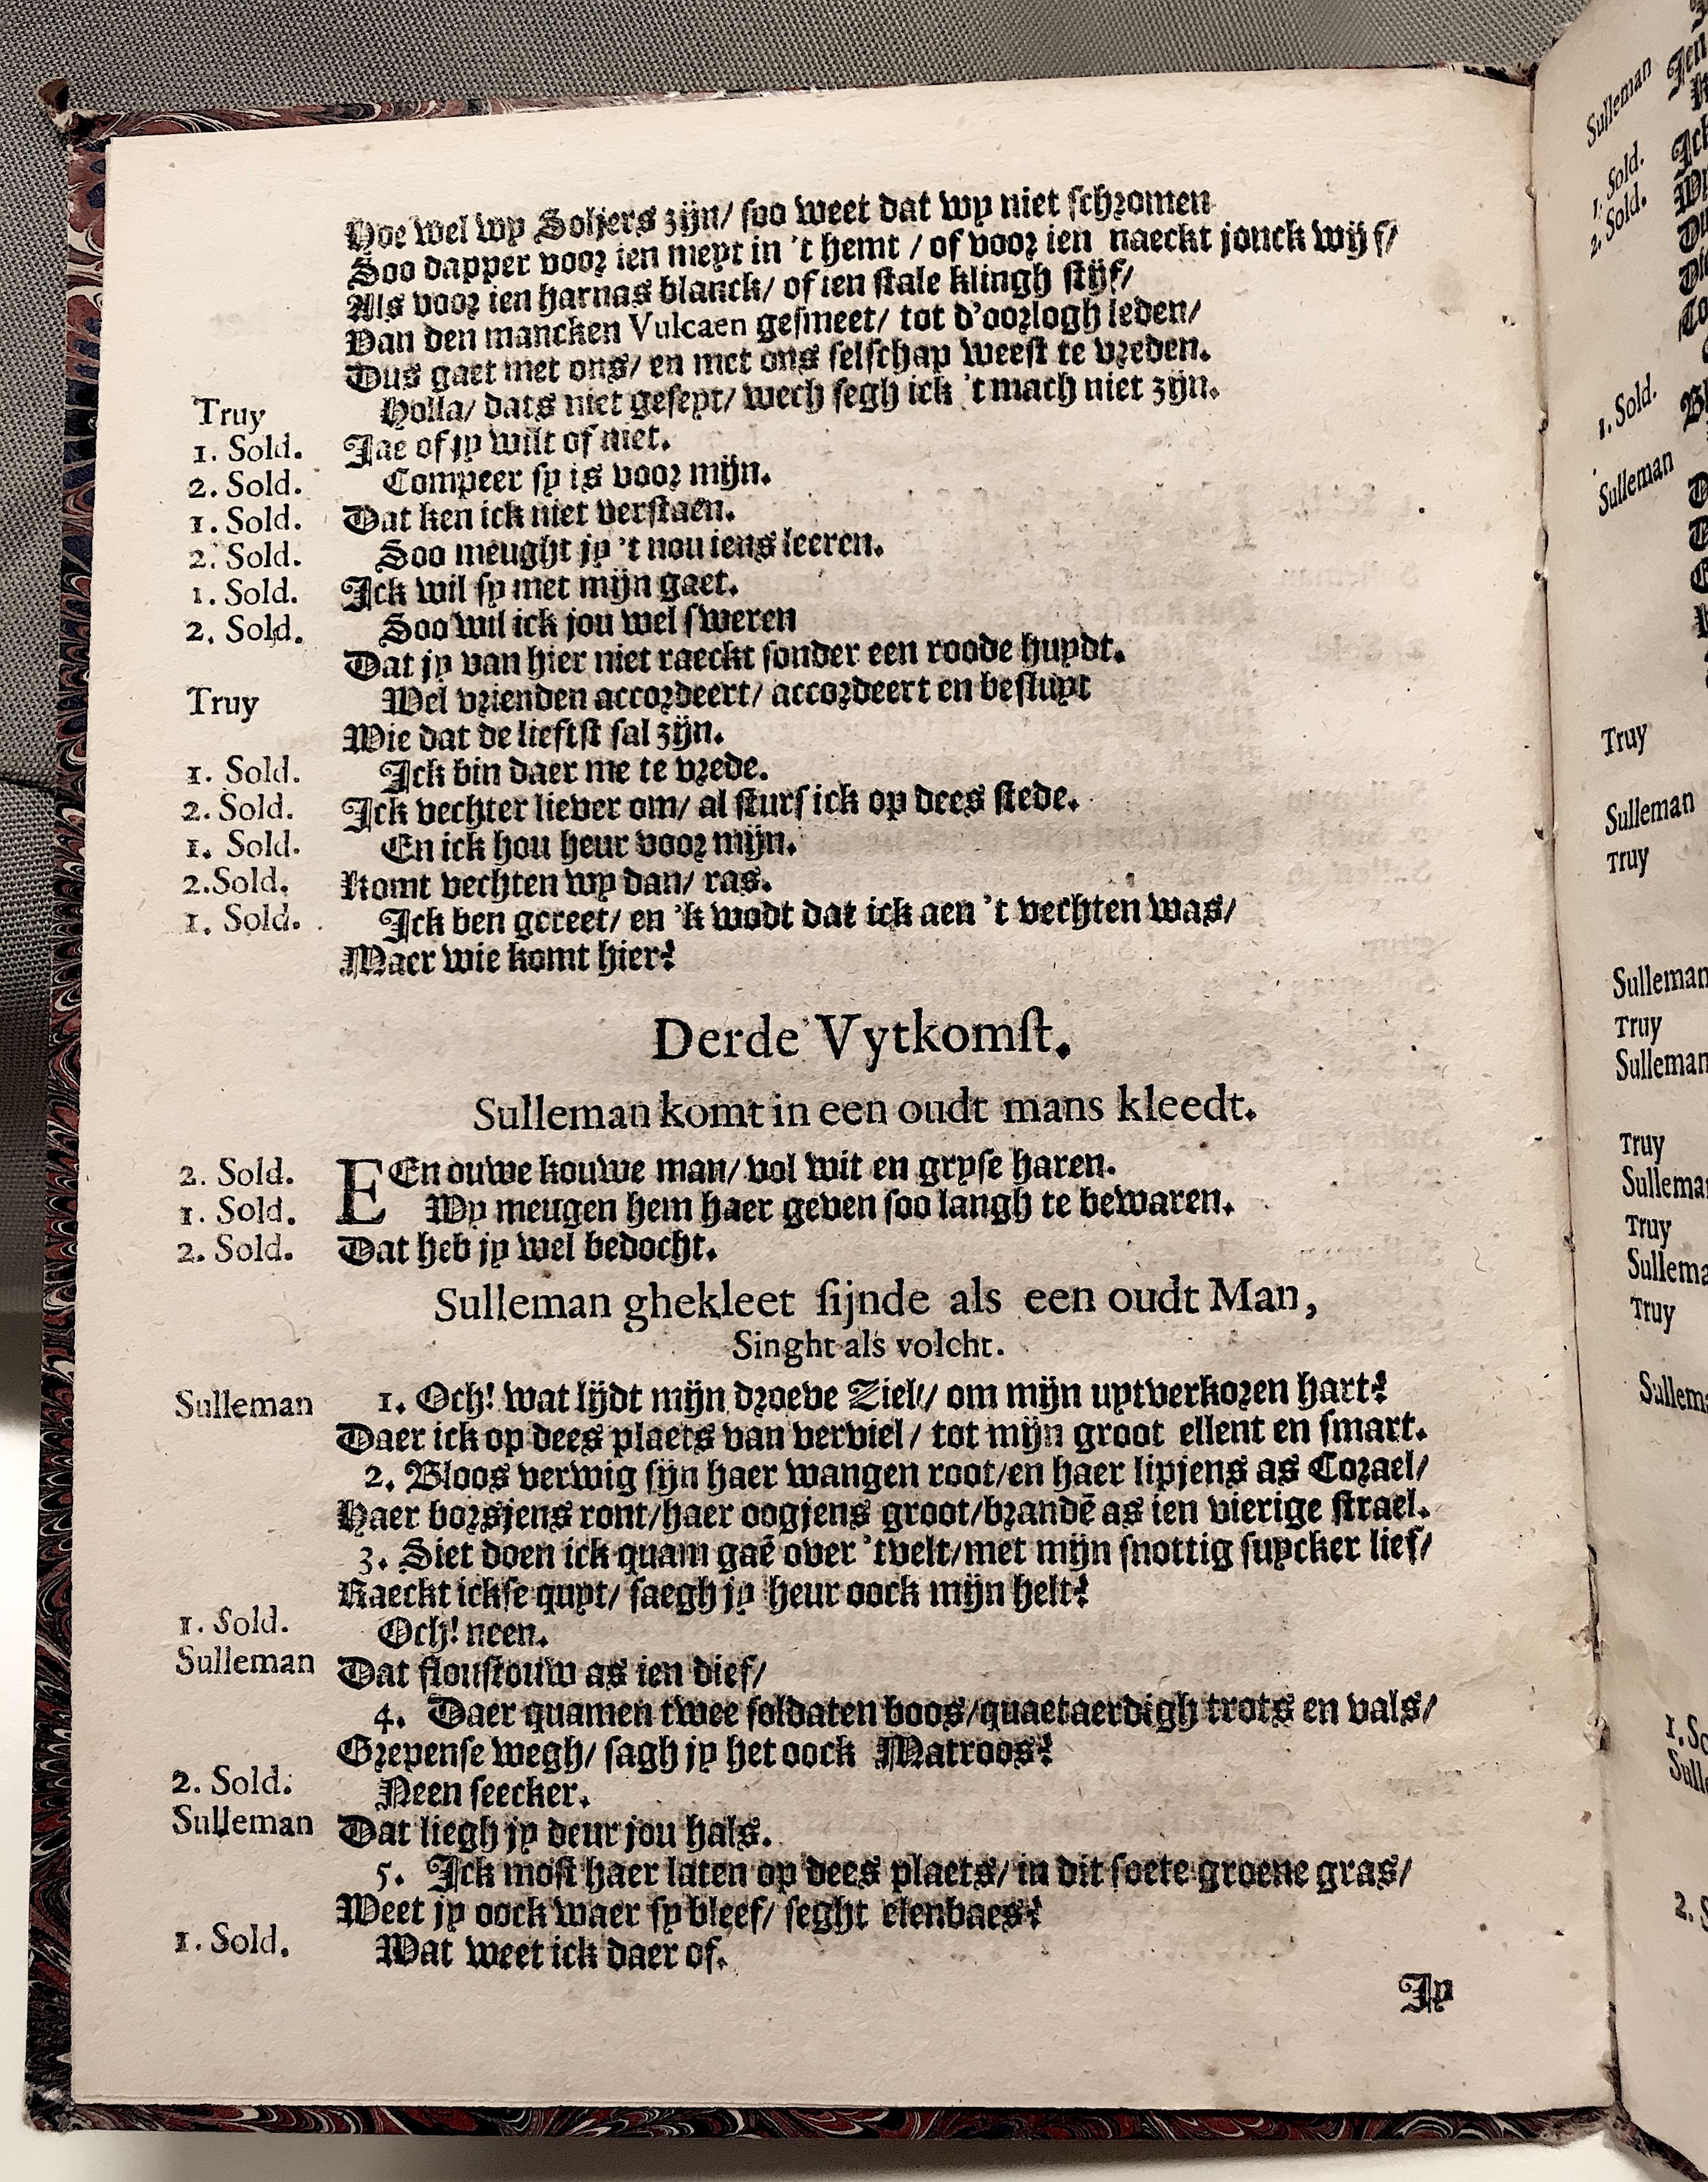 Hoe wel wy Soljers zijn/ soo weet dat wy niet schromen
Soo dapper voor ien meyt in 't hemt / of voor ien naeckt jonck wijf/
Als voor ien harnas blanck/ of ien stale klingh stijf/
Van den mancken Vulcaen gesmeet/ tot d'oorlogh leden/
Dus gaet met ons/ en met ons selschap weest te vreden.
Truy Holla/ dats niet geseyt/ wech segh ick 't mach niet zijn.
1. Sold. Jae of jy wilt of niet.
2. Sold. Compeer sy is voor mijn.
1. Sold. Dat ken ick niet verstaen.
2. Sold. Soo meught jy 't nou iens leeren.
1. Sold. Ick wil sy met mijn gaet.
2. Sold. Soo wil ick jou wel sweren
Dat jy van hier niet raeckt sonder een roode huydt.
Truy Wel vrienden accordeert/ accordeert en besluyt
Wie dat de liefst sal zijn.
1. Sold. Ick bin daer me te vrede.
2. Sold. Ick vechter liever om/ al sturf ick op dees stede.
1. Sold. En ick hou heur voor mijn.
2. Sold. Komt vechten wy dan/ ras.
1. Sold. Ick ben gereet/ en 'k wodt dat ick aen 't vechten was/
Maer wie komt hier?
Derde Vytkomst.
Sulleman komt in een oudt mans kleedt.
2. Sold. EEn ouwe kouwe man/ vol wit en gryse haren.
1. Sold. Wy meugen hem haer geven soo langh te bewaren.
2. Sold. Dat heb jy wel bedocht.
Sulleman ghekleet sijnde als een oudt Man,
Singht als volcht.
Sulleman 1. Och! wat lijdt mijn droeve Ziel!/ om mijn uytverkoren hart?
Daer ick op dees plaets van verviel/ tot mijn groot ellent en smart.
2. Bloos verwig sijn haer wangen root/en haer lipjens as Corael/
Haer borsjens ront/haer oogjens groot/brandē as ien vierige strael.
3. Siet doen ick quam gaē over 'tvelt/met mijn snottig suycker lief/
Raeckt ickse quyt/ saegh jy heur oock mijn helt?
1. Sold. Och! neen.
Sulleman Dat floustouw as ien dief/
4. Daer quamen twee soldaten boos/quaetaerdigh trots en vals/
Grepense wegh/ sagh jy het oock Matroos?
2. Sold. Neen seecker.
Sulleman Dat liegh jy deur jou hals.
5. Ick most haer laten op dees plaets/ in dit soete groene gras/
Weet jy oock waer sy bleef/ seght elenbaes?
1. Sold. Wat weet ick daer of.
Jy
Sulleman
1. Sold.
2. Sold.
1. Sold.
Sulleman
Truy
Sulleman
Truy
Sulleman
Truy
Sulleman
Truy
Sullema
Truy
Sullema
Truy
Sullem